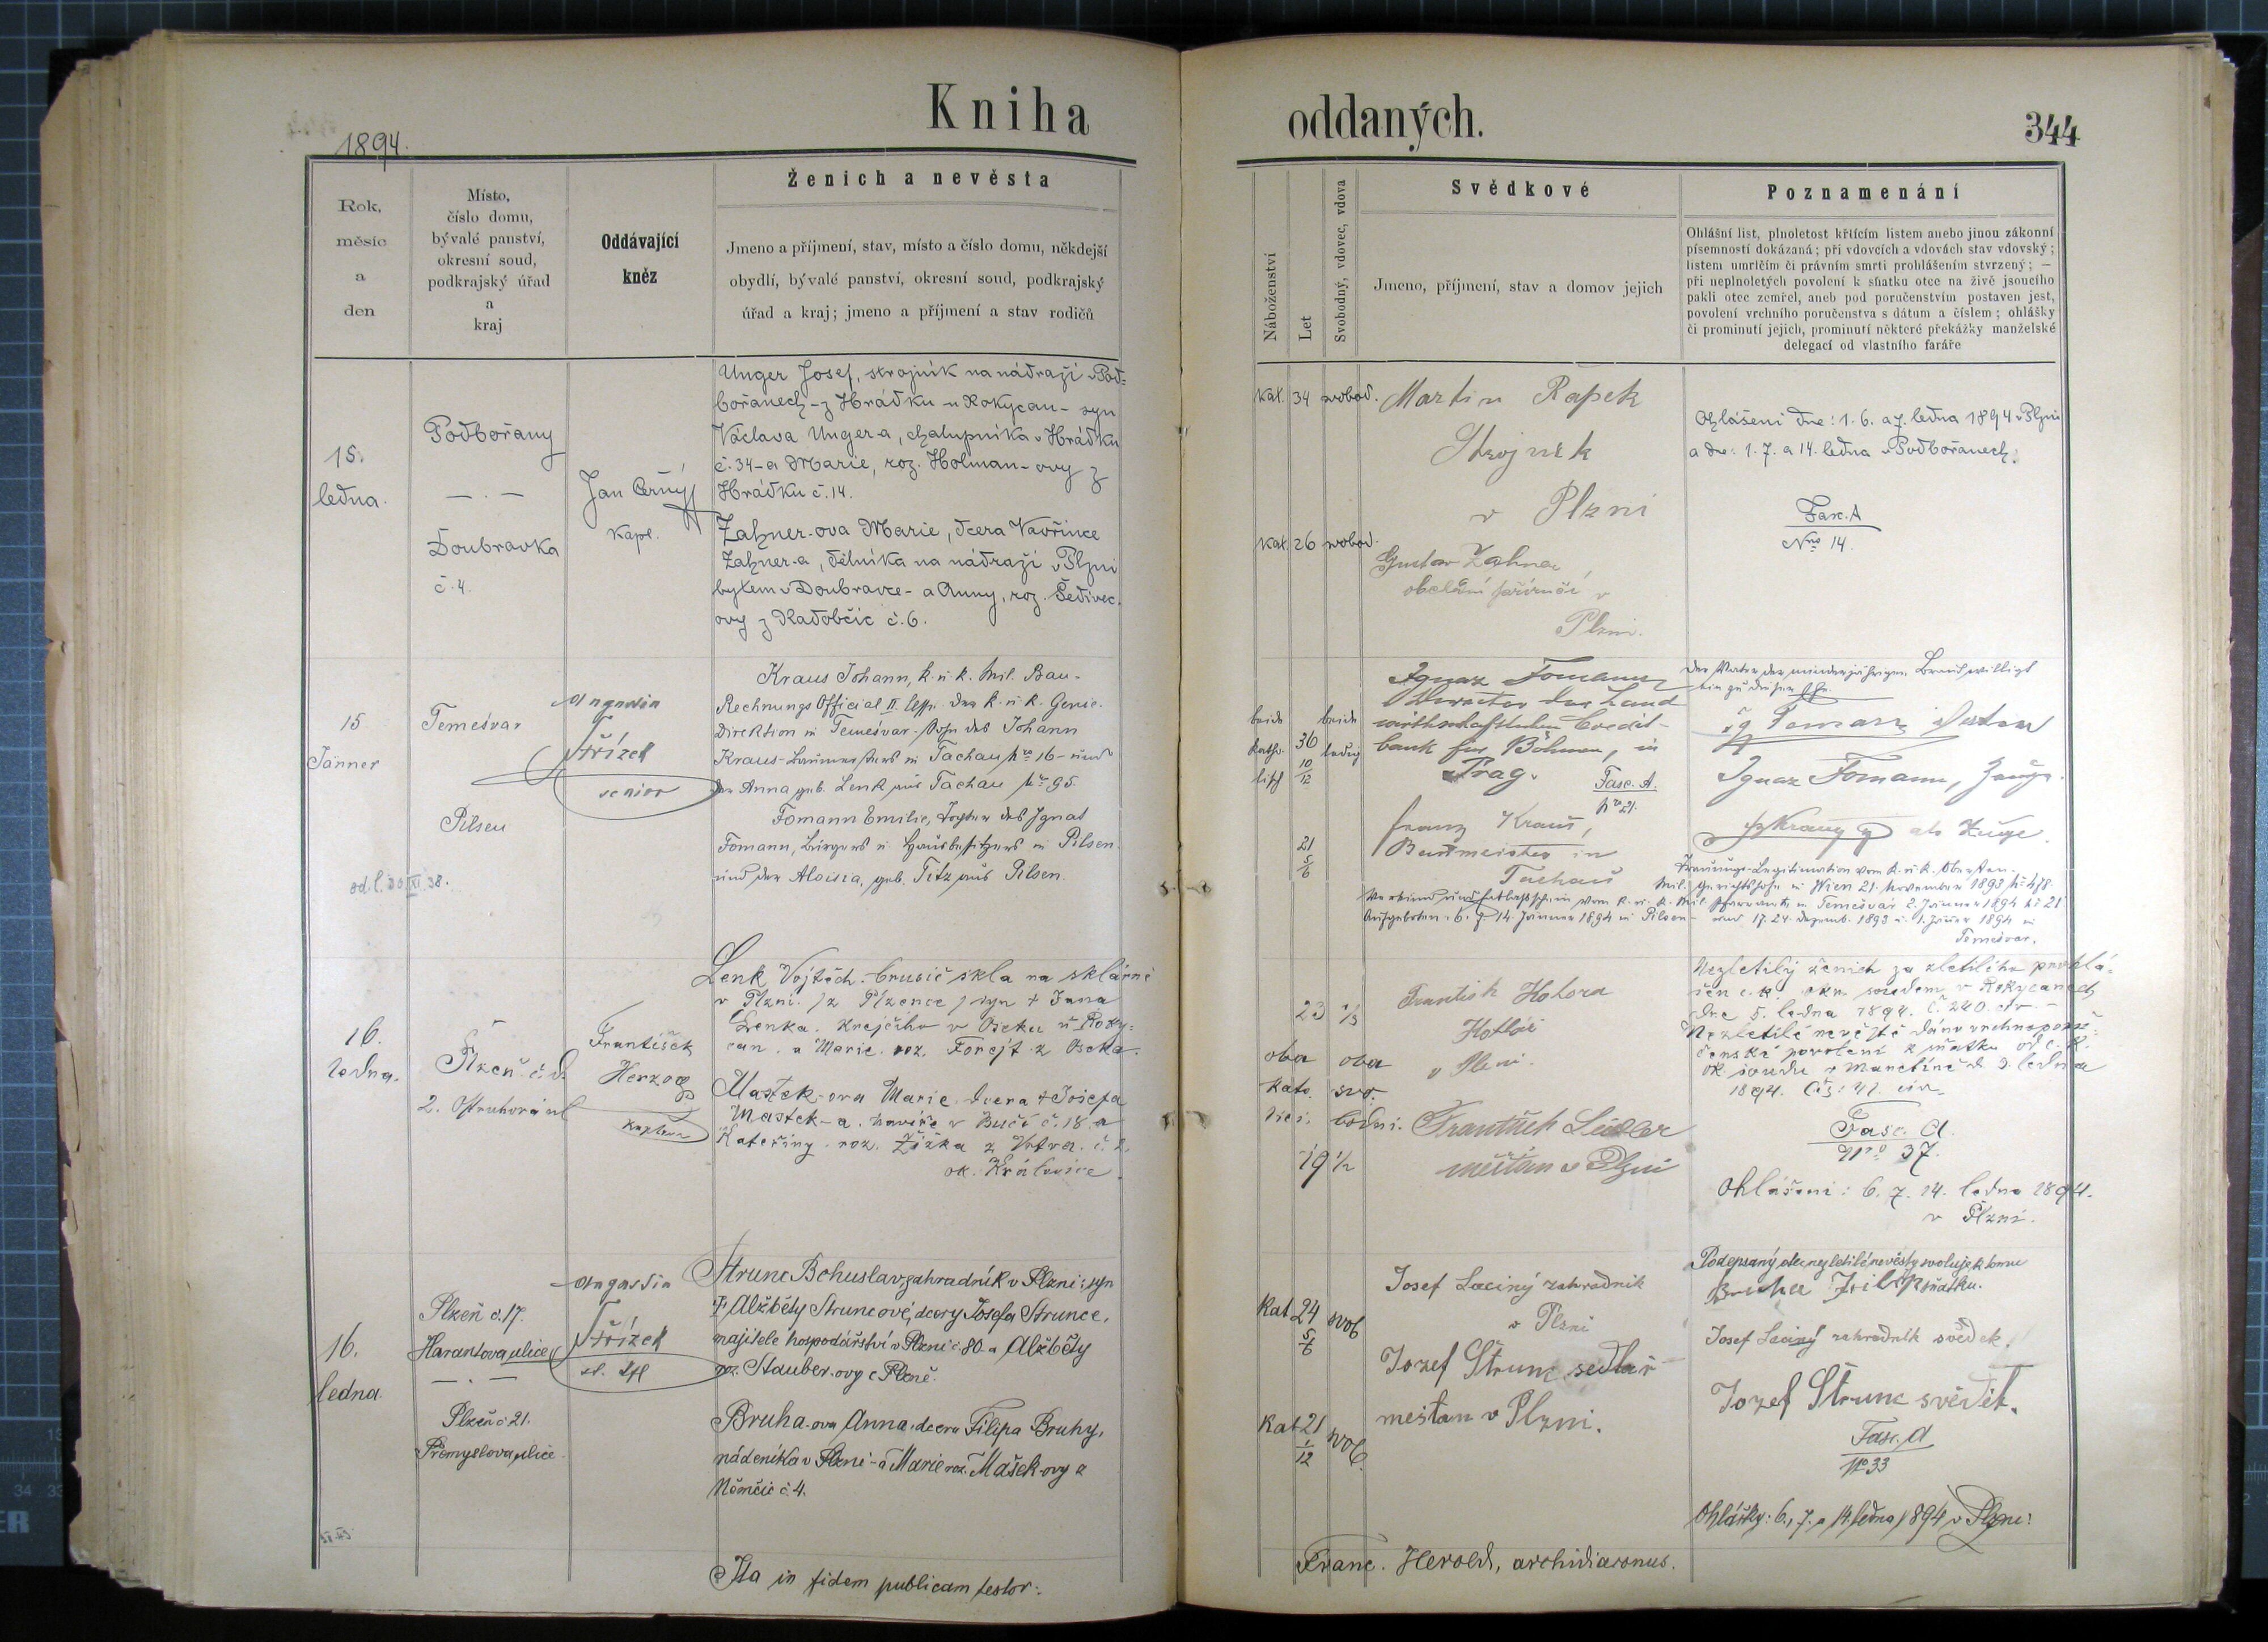 Kniha
oddaných.
344
1894.
Rok,
měsíc
a
den
Místo,
číslo domu,
bývalé panství,
okresní soud,
podkrajský úřad
a
kraj
Oddávající
kněz
Ženich a nevěsta
Jmeno a příjmení, stav, místo a číslo domu, někdejší
obydlí, bývalé panství, okresní soud, podkrajský
úřad a kraj; jmeno a příjmení a stav rodičů
Náboženství
Let
Svobodný, vdovec, vdova
Svědkové
Jmeno, příjmení, stav a domov jejich
Poznamenání
Ohlášní list, plnoletost křticím listem anebo jinou zákonní
písemností dokázaná; při vdovcích a vdovách stav vdovský;
listem umrlčím či právním smrti prohlášením stvrzený; —
při neplnoletých povolení k sňatku otce na živě jsoucího
pakli otec zemřel, aneb pod poručenstvím postaven jest,
povolení vrchního poručenstva s dátum a číslem; ohlášky
či prominutí jejich, prominutí některé překážky manželské
delegací od vlastního faráře
15.
ledna.
Podbořany
— . —
Doubravka
č. 4.
Jan Černý
kapl.
Unger Josef, strojník na nádraží v Pod=
bořanech - z Hrádku u Rokycan - syn
Václava Unger-a, chalupníka v Hrádku
č. 34 - a Marie, roz. Holman-ovy z
Hrádku č. 14.
Zahner-ova Marie, dcera Vavřince
Zahner-a, dělníka na nádraží v Plzni
bytem v Doubravce - a Anny, roz. Šedivec-
ovy z Radobčic č. 6.
kat. 34 svobod.
kat. 26 svobod.
Martin Rapek
Strojník
v Plzni
Gustav Zahner
v
Plzni.
Ohlášeni dne: 1. 6. a 7. ledna 1894 v Plzni
a dne: 1. 7. a 14. ledna v Podbořanech.
Fasc. A
Nro 14.
15
Jänner
Temešvar
Pilsen
Střízek
senior
Kraus Johann, k. u. k. Mil. Bau-
Rechnungs Official II. der k. u. k. Genie-
Direktion in Temešvar - Sohn des Johann
Kraus - in Tachau Nro 16 - und
der Anna geb. Lenk aus Tachau Nr. 95.
Fomann Emilie, Tochter des Ignat
Fomann, Bürgers u. Hausbesitzers in Pilsen
und der Aloisia, geb. Titz aus Pilsen.
beide
katho-
lisch
36
10
12
beide
ledig
21
5
6
Ignaz Fomann
Director der Land
wirthschaftlichen Credit-
bank für Böhmen, in
Prag.
Fasc. A.
Nro 21.
Franz Kraus,
Baumeister in
Tachau
Der Vater der minderjährigen Braut willigt
ein zu dieser Ehe.
Ig Fomann Vater
Ignaz Fomann, Zeuge.
Kraus als Zeuge.
Trauungs-Legitimation vom k. u. k. Obersten
Mil. Gerichtshofe in Wien 21. November 1893 Nr. 478.
vom k. u. k. Mil. Pfarramte in Temešvár 2. Jänner 1894 Nr 21
Aufgeboten: 6. 7. 14. Jänner 1894 in Pilsen - und 17. 24. Dezemb. 1893 u. 1. Jänner 1894 in
Temešvar.
16.
ledna.
Plzeň č. d.
2.
František
Herzog
kaplan
Lenk Vojtěch. brusič skla na sklárně
v Plzni. /z Plzence/ syn + Jana
Lenka. krejčího v Oseku u Roky=
can. a Marie. roz. Forejt z Oseka.
Mastek-ova Marie. dcera + Josefa
Mastek-a. havíře v Bučí č. 18. a
Kateřiny. roz. Žižka z č. 2.
ok. Kralovice.
23
oba
kato.
lici.
oba
svo.
bodni.
19 1/2
František Hotora
Kotlář
v Plzni.
František Seidler
měšťan v Plzni
Nezletilý ženich za zletilého prohlá=
šen c. k. okr. soudem v Rokycanech
dne 5. ledna 1894. č. 240. civ. -
Nezletilé nevěstě dáno vrchnoporu=
čenské povolení k sňatku od c. k.
ok. soudu v Manětíně d. 9. ledna
1894. Čís: 41. civ
Fasc. A.
Nro 37.
Ohlášeni: 6. 7. 14. ledna 1894.
v Plzni.
16.
ledna.
Plzeň č. 17.
Harantova ulice
— . —
Plzeň č 21.
Přemyslova ulice.
Střízek
Strunc Bohuslav, zahradník v Plzni; syn
+ Alžběty Struncové, dcery Josefa Strunce,
majitele hospodářství v Plzni č. 80. a Alžběty
roz. Stauber-ovy z Plzně.
Bruha-ova Anna, dcera Filipa Bruhy,
nádeníka v Plzni - a Marie roz. Mašek-ovy z
Němčic č. 4.
Kat 24
5
6
svob
Kat 21
1
12
svob.
Josef Laciný zahradník
v Plzni
Jozef Štrunc sedlař
mešťan v Plzni.
Podepsaný otec nezletilé nevěsty svoluje k tomu
sňatku.
Josef Laciný zahradník svědek.
Jozef Štrunc svědek.
Fasc. A
No 33
Ohlášky: 6., 7. a 14. ledna 1894 v Plzni.
Ita in fidem publicam testor:
Franc. Herold, archidiaconus.